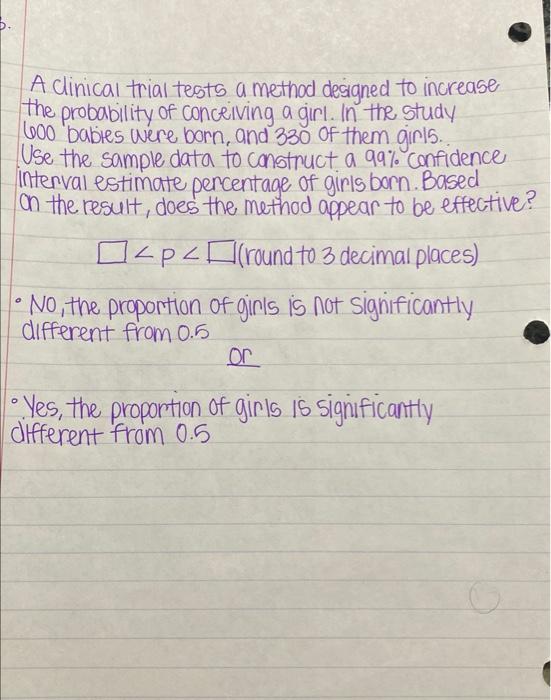 3.
A clinical trial tests a method designed to increase
the probability of conceiving a girl. In the study
600 babies were born, and 330 of them girls.
Use the sample data to construct a 99% confidence
interval estimate percentage of girls born. Based
on the result, does the method appear to be effective?
□<p<□(round to 3 decimal places)
• No, the proportion of girls is not significantly
different from 0.5
or
• Yes, the proportion of girls is significantly
different from 0.5